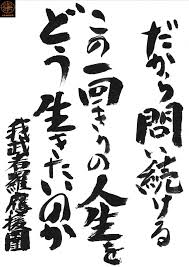 だから問い続ける
この一回きりの人生を
どう生きたいのか
我武者羅應援團